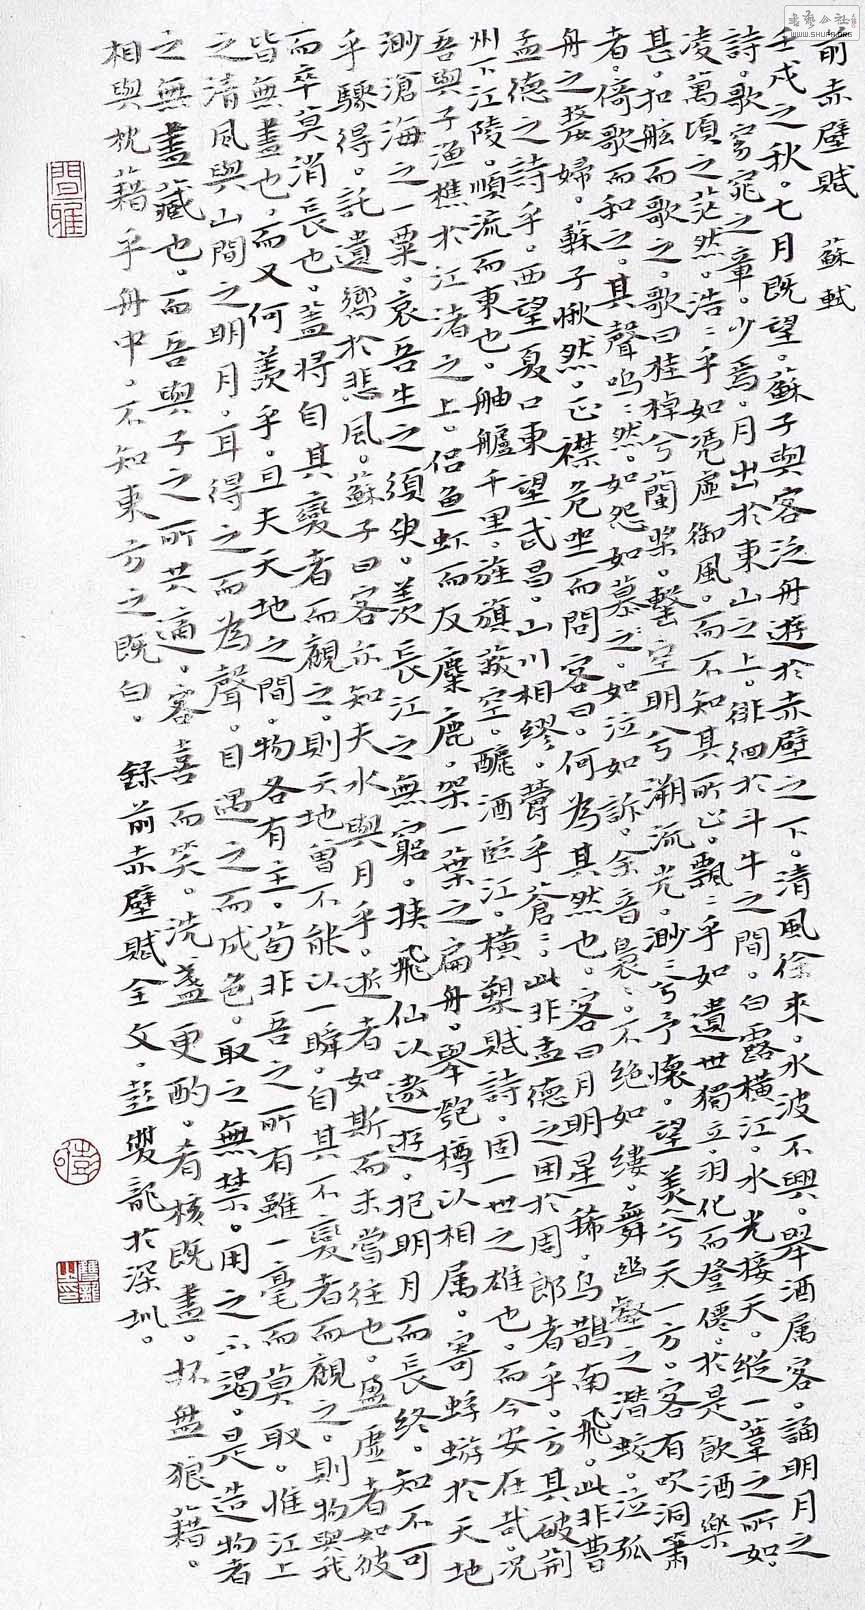 前赤壁賦 蘇軾
壬戌之秋。七月既望。蘇子與客泛舟遊於赤壁之下。清風徐來。水波不興。舉酒属客。誦明月之
詩。歌窈窕之章。少焉。月出於東山之上。徘徊於斗牛之間。白露橫江。水光接天。縱一葦之所如。
凌萬頃之茫然。浩:乎如馮虛御風。而不知其所止。飄:乎如遺世獨立。羽化而登僊。於是飲酒樂
甚。扣舷而歌之。歌曰桂棹兮蘭槳。擊空明兮溯流光。渺:兮予懷。望美人兮天一方。客有吹洞簫
者。倚歌而和之。其聲嗚:然。如怨如慕。如泣如訴。余音裊:。不绝如缕。舞幽壑之潜蛟。泣孤
舟之嫠婦。蘇子愀然。正襟危坐而問客曰。何為其然也。客曰月明星稀。烏鵲南飛。此非曹
孟德之詩乎。西望夏口東望武昌。山川相繆。鬱乎蒼:。此非孟德之困於周郎者乎。方其破荆
州下江陵。順流而東也。舳艫千里。旌旗蔽空。釃酒臨江。橫槊賦詩。固一世之雄也。而今安在哉。况
吾與子漁樵於江渚之上。侣鱼虾而友麋鹿。架一葉之扁舟。舉匏樽以相属。寄蜉蝣於天地
渺滄海之一粟。哀吾生之須臾。羨長江之無窮。挟飛仙以遨遊。抱明月而長终。知不可
乎驟得。託遺響於悲風。蘇子曰客亦知夫水與月乎。逝者如斯而未嘗往也。盈虛者如彼
而卒莫消長也。蓋将自其變者而觀之。則天地曾不能以一瞬。自其不變者而觀之。則物與我
皆無盡也。而又何羨乎。且夫天地之間。物各有主。苟非吾之所有雖一毫而莫取。惟江上
之清風與山間之明月。耳得之而為聲。目遇之而成色。取之無禁。用之不竭。是造物者
之無盡藏也。而吾與子之所共適。客喜而笑。洗盞更酌。肴核既盡。杯盤狼藉。
相與枕藉乎舟中。不知東方之既白。 錄前赤壁賦全文。彭雙龍於深圳。
雙龍
WWW.SHUFA.ORG